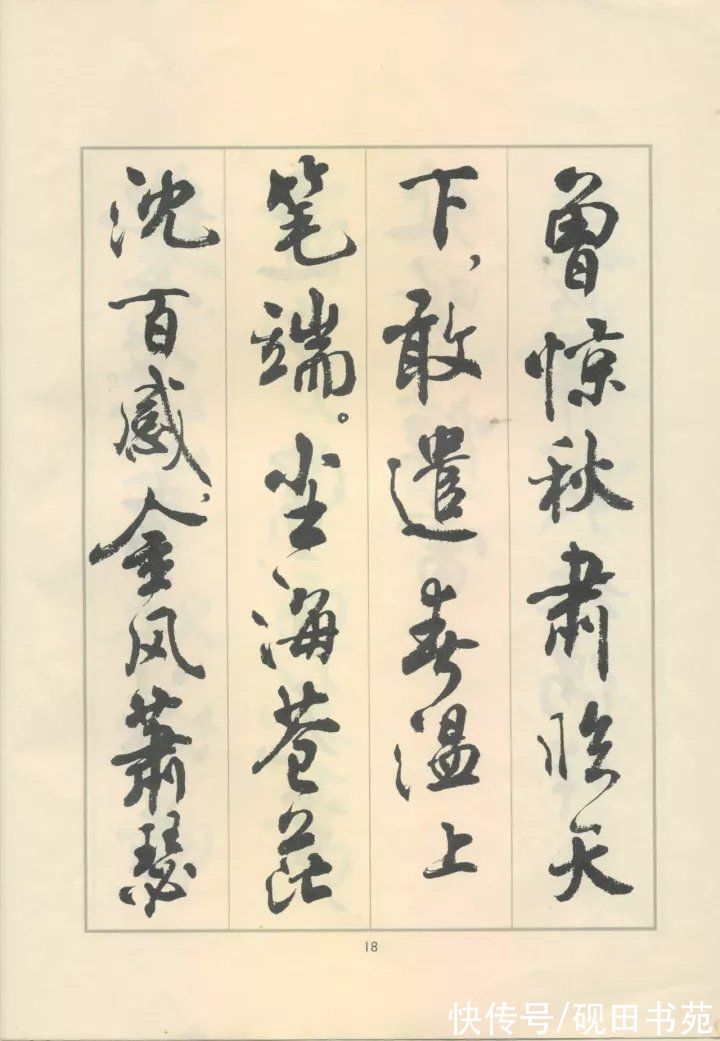 曾惊秋肃临天
下，敢遣春温上
笔端。尘海苍茫
沈百感，金风萧瑟
18
快传号/砚田书苑